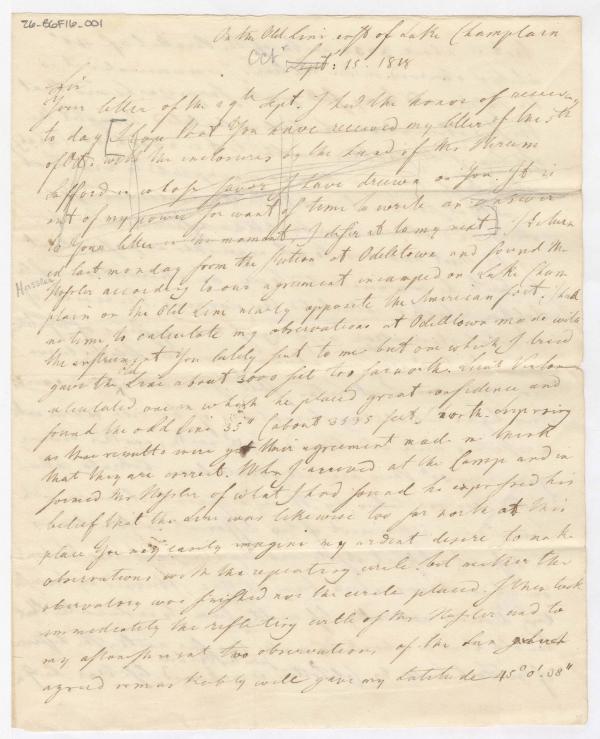 26-86F16_001
On the Old Line east of Lake Champlain
Octr Septr: 15. 1818
Sir
Your letter of the 29th Sept. I had the honor of receiving
to day [I hope that You have received my letter of the 5th
of Oct. with the inclosures by the hand of Mr Hiram
in whose favor I have drawn on You. It is
out of my power for want of time to write an answer
to Your letter in the moment, I defer it to my next] I return
ed last monday from the station at Odelltown and found Mr
Hassler
Hassler according to our agreement incamped on Lake Cham
plain on the Old Line nearly opposite the American fort. I had
no time to calculate my observations at Odelltown made with
the instrument You lately sent to me but one which I tried
gave the old Line about 3000 feet too far north. Lieut
calculated one in which he placed great confidence and
found the old line 35" (about 3535 feet) north.
as these results were yet their agreement made me think
that they are correct. When I arrived at the Camp and in
formed Mr Hassler of what I had found he expressed his
belief that the Line was likewise too far north at this
place You may easily imagine my ardent desire to make
observations with the repeating circle but neither the
observatory was finished nor the circle placed. I then took
immediately the reflecting circle of Mr Hassler and to
my astonishment two observations of the Sun which
agreed remarkably well gave my Latitude 45° 0'. 38"